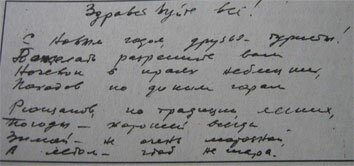 Здравствуйте все!
С Новым годом, друзья туристы!
Пожелать разрешите вам
Ночевок в краях неблизких,
Походов по диким горам
Рюкзаков, по традиции легких,
Погоды – хорошей всегда
Зимой – не очень морозной,
А летом – чтоб не жара.